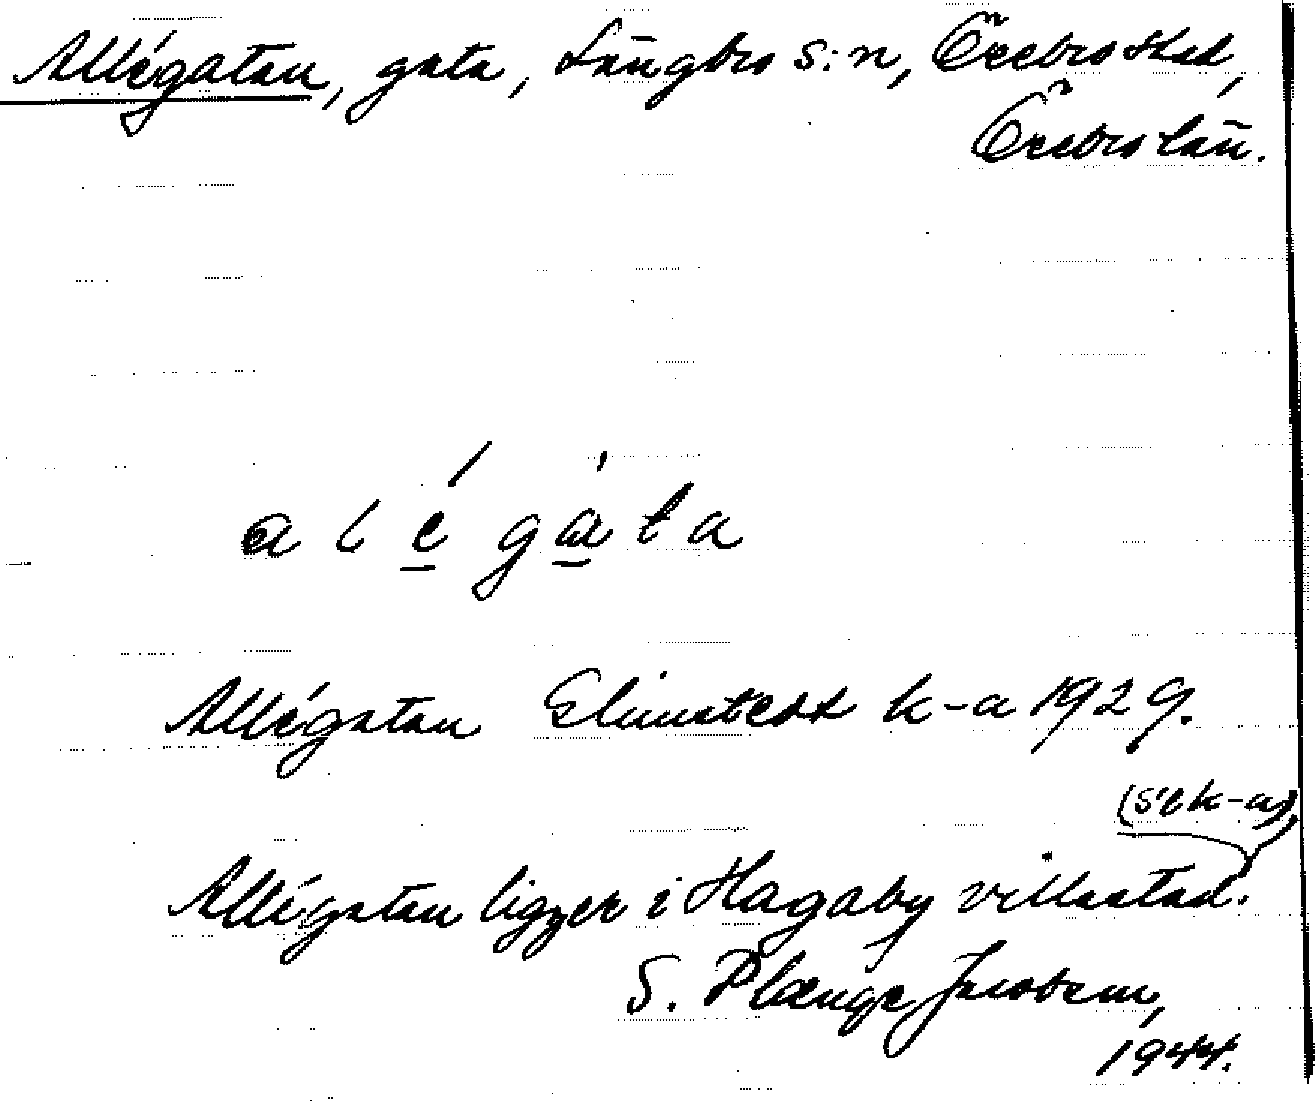 Allégatan, gata, Längbro s:n, Örebro stad,
Örebro län.
a l é g a t a
Allégatan Elmstedt k-a 1929.
(s'e k-a),
Allégatan ligger i Hagaby villastad.
S. Plænge Jacobson,
1944.